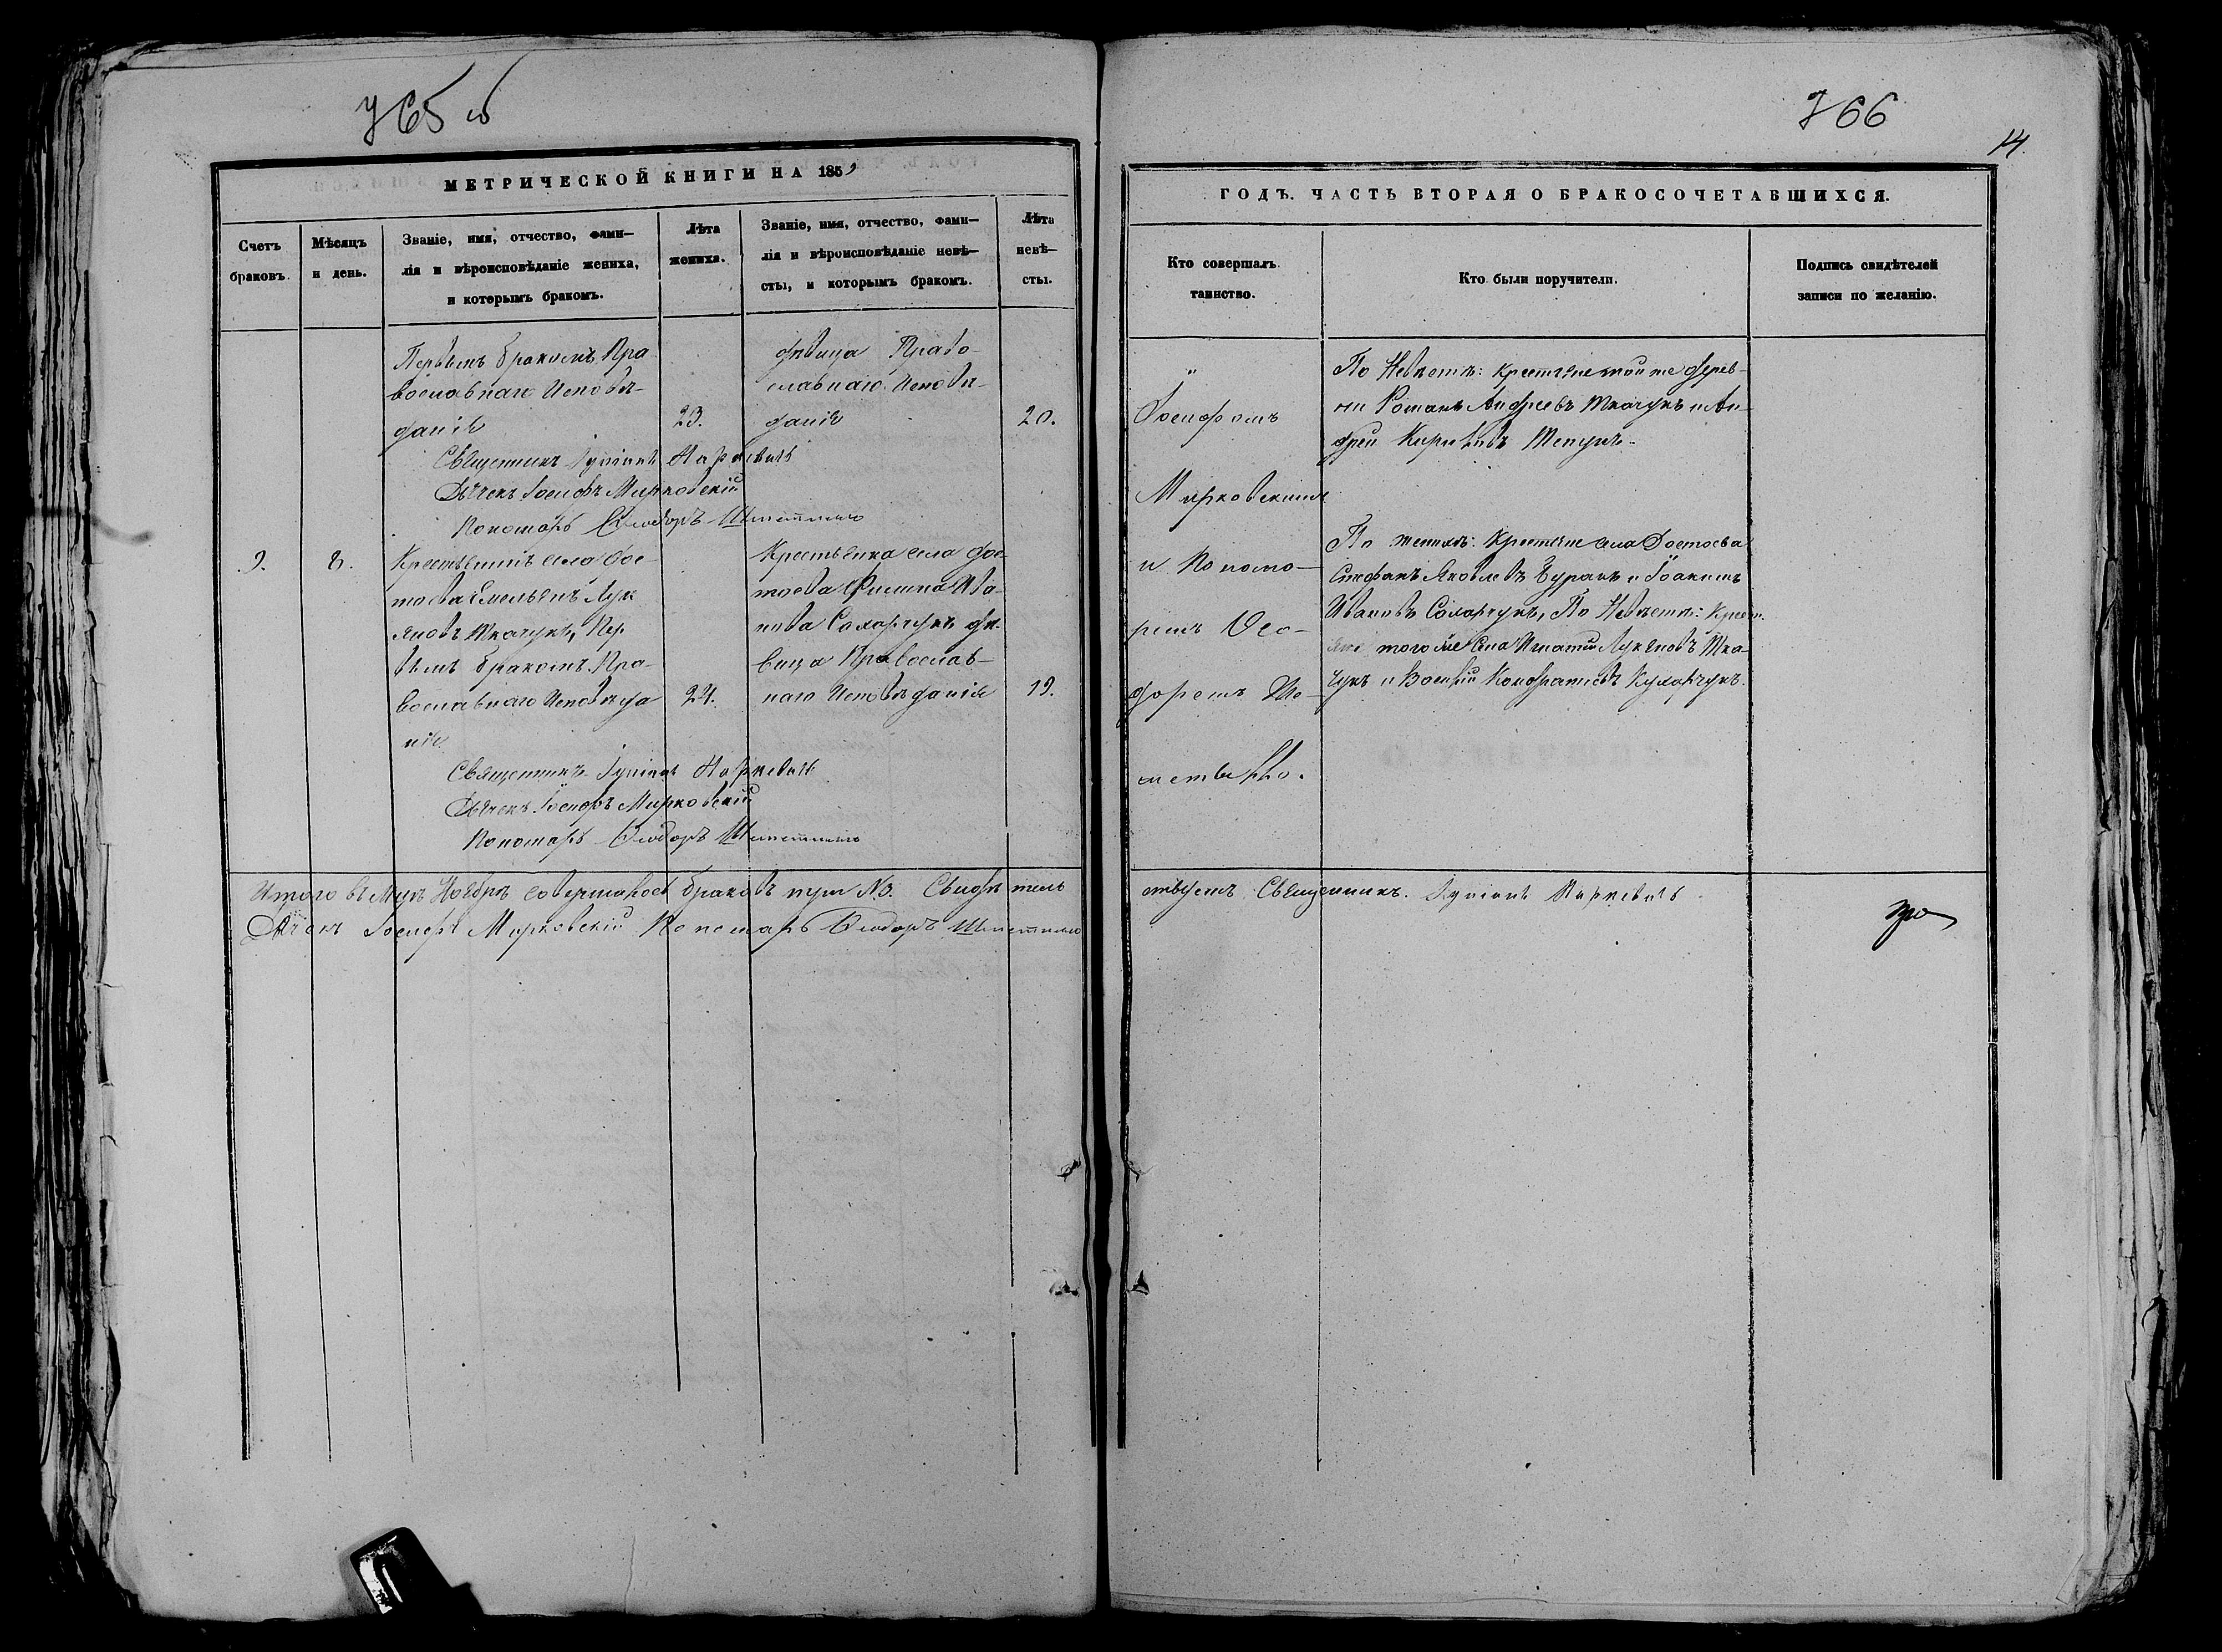 765 об
МЕТРИЧЕСКОЙ КНИГИ НА 1859
Счетъ браковъ.
Мѣсяцъ и день.
Званіе, имя, отчество, фами—
лія и вѣроисповѣданіе жениха,
и которымъ бракомъ.
Лѣта
жениха.
Званіе, имя, отчество, фами—
лія и вѣроисповѣданіе невѣ—
сты, и которымъ бракомъ.
Лѣта
невѣ—
сты.
Первымъ бракомъ, Пра
вославнаго Исповѣ-
данія
23.
дѣвица Право-
славнаго Исповѣ-
данія
20.
Священникъ
Дьячекъ Іосифъ Мирковскій
Пономарь Ѳеодоръ
9.
8.
Крестьянинъ села Дос-
тоева Емельянъ Лук
яновъ Ткачукъ, Пер
вымъ бракомъ, Пра-
вославнаго Исповѣда
нія
24.
Крестьянка села Дос-
тоева Ива-
нова Сахарчукъ дѣ-
вица Православ-
наго Исповѣданія
19.
Священникъ
Дьячекъ Іосифъ Мирковскій
Пономарь Ѳеодоръ
Итого въ М-цѣ Ноябрѣ совершилось браковъ три №3. Свидѣтель
Дьячекъ Іосифъ Мирковскій Пономарь Ѳеодоръ
766
14.
ГОДЪ. ЧАСТЬ ВТОРАЯ О БРАКОСОЧЕТАВШИХСЯ.
Кто совершалъ
таинство.
Кто были поручители.
Подпись свидѣтелей
записи по желанію.
Іосифомъ
Мирковскимъ
и Пономо-
ремъ Ѳео-
доромъ
По Невѣстѣ: крестьяне тойже дерев-
ни Романъ Андреевъ Ткачукъ и Ан-
дрей
По женихѣ: Крестьяне села Достоева
Стефанъ Яковлевъ Буракъ и Іоакимъ
Ивановъ Сахарчукъ, По Невѣстѣ: Крест.
яне того же Села Игнатій Лукяновъ Тка-
чукъ и Василій Кондратіевъ
ствуетъ Священникъ.